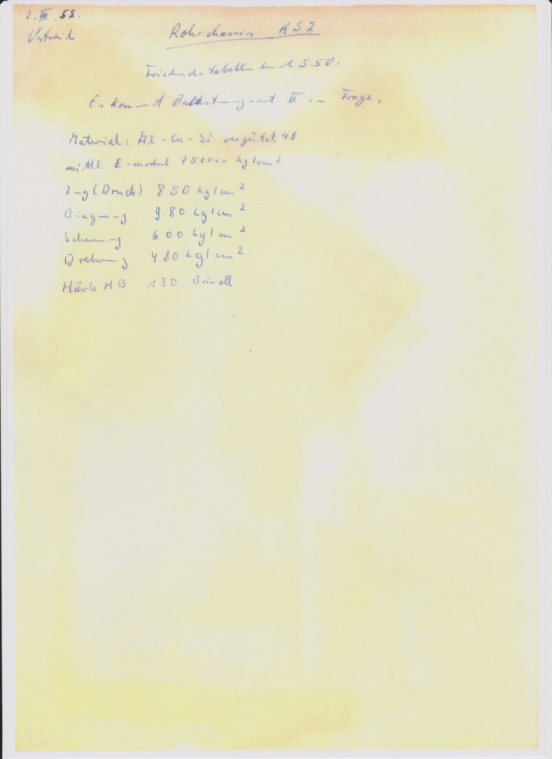 2. III. 58.
Rohrchassis RS2
Friedrichs Tabellenbuch S. 50.
Es kommt Belastungsart II in Frage.
Material: Al-Cu-Si vergütet 48
mittl. E-modul 750000 kg/cm²
Zug (Druck) 850 kg/cm²
Biegung 980 kg/cm²
Scherung 600 kg/cm²
Drehung 480 kg/cm²
Härte HB 130 Brinell